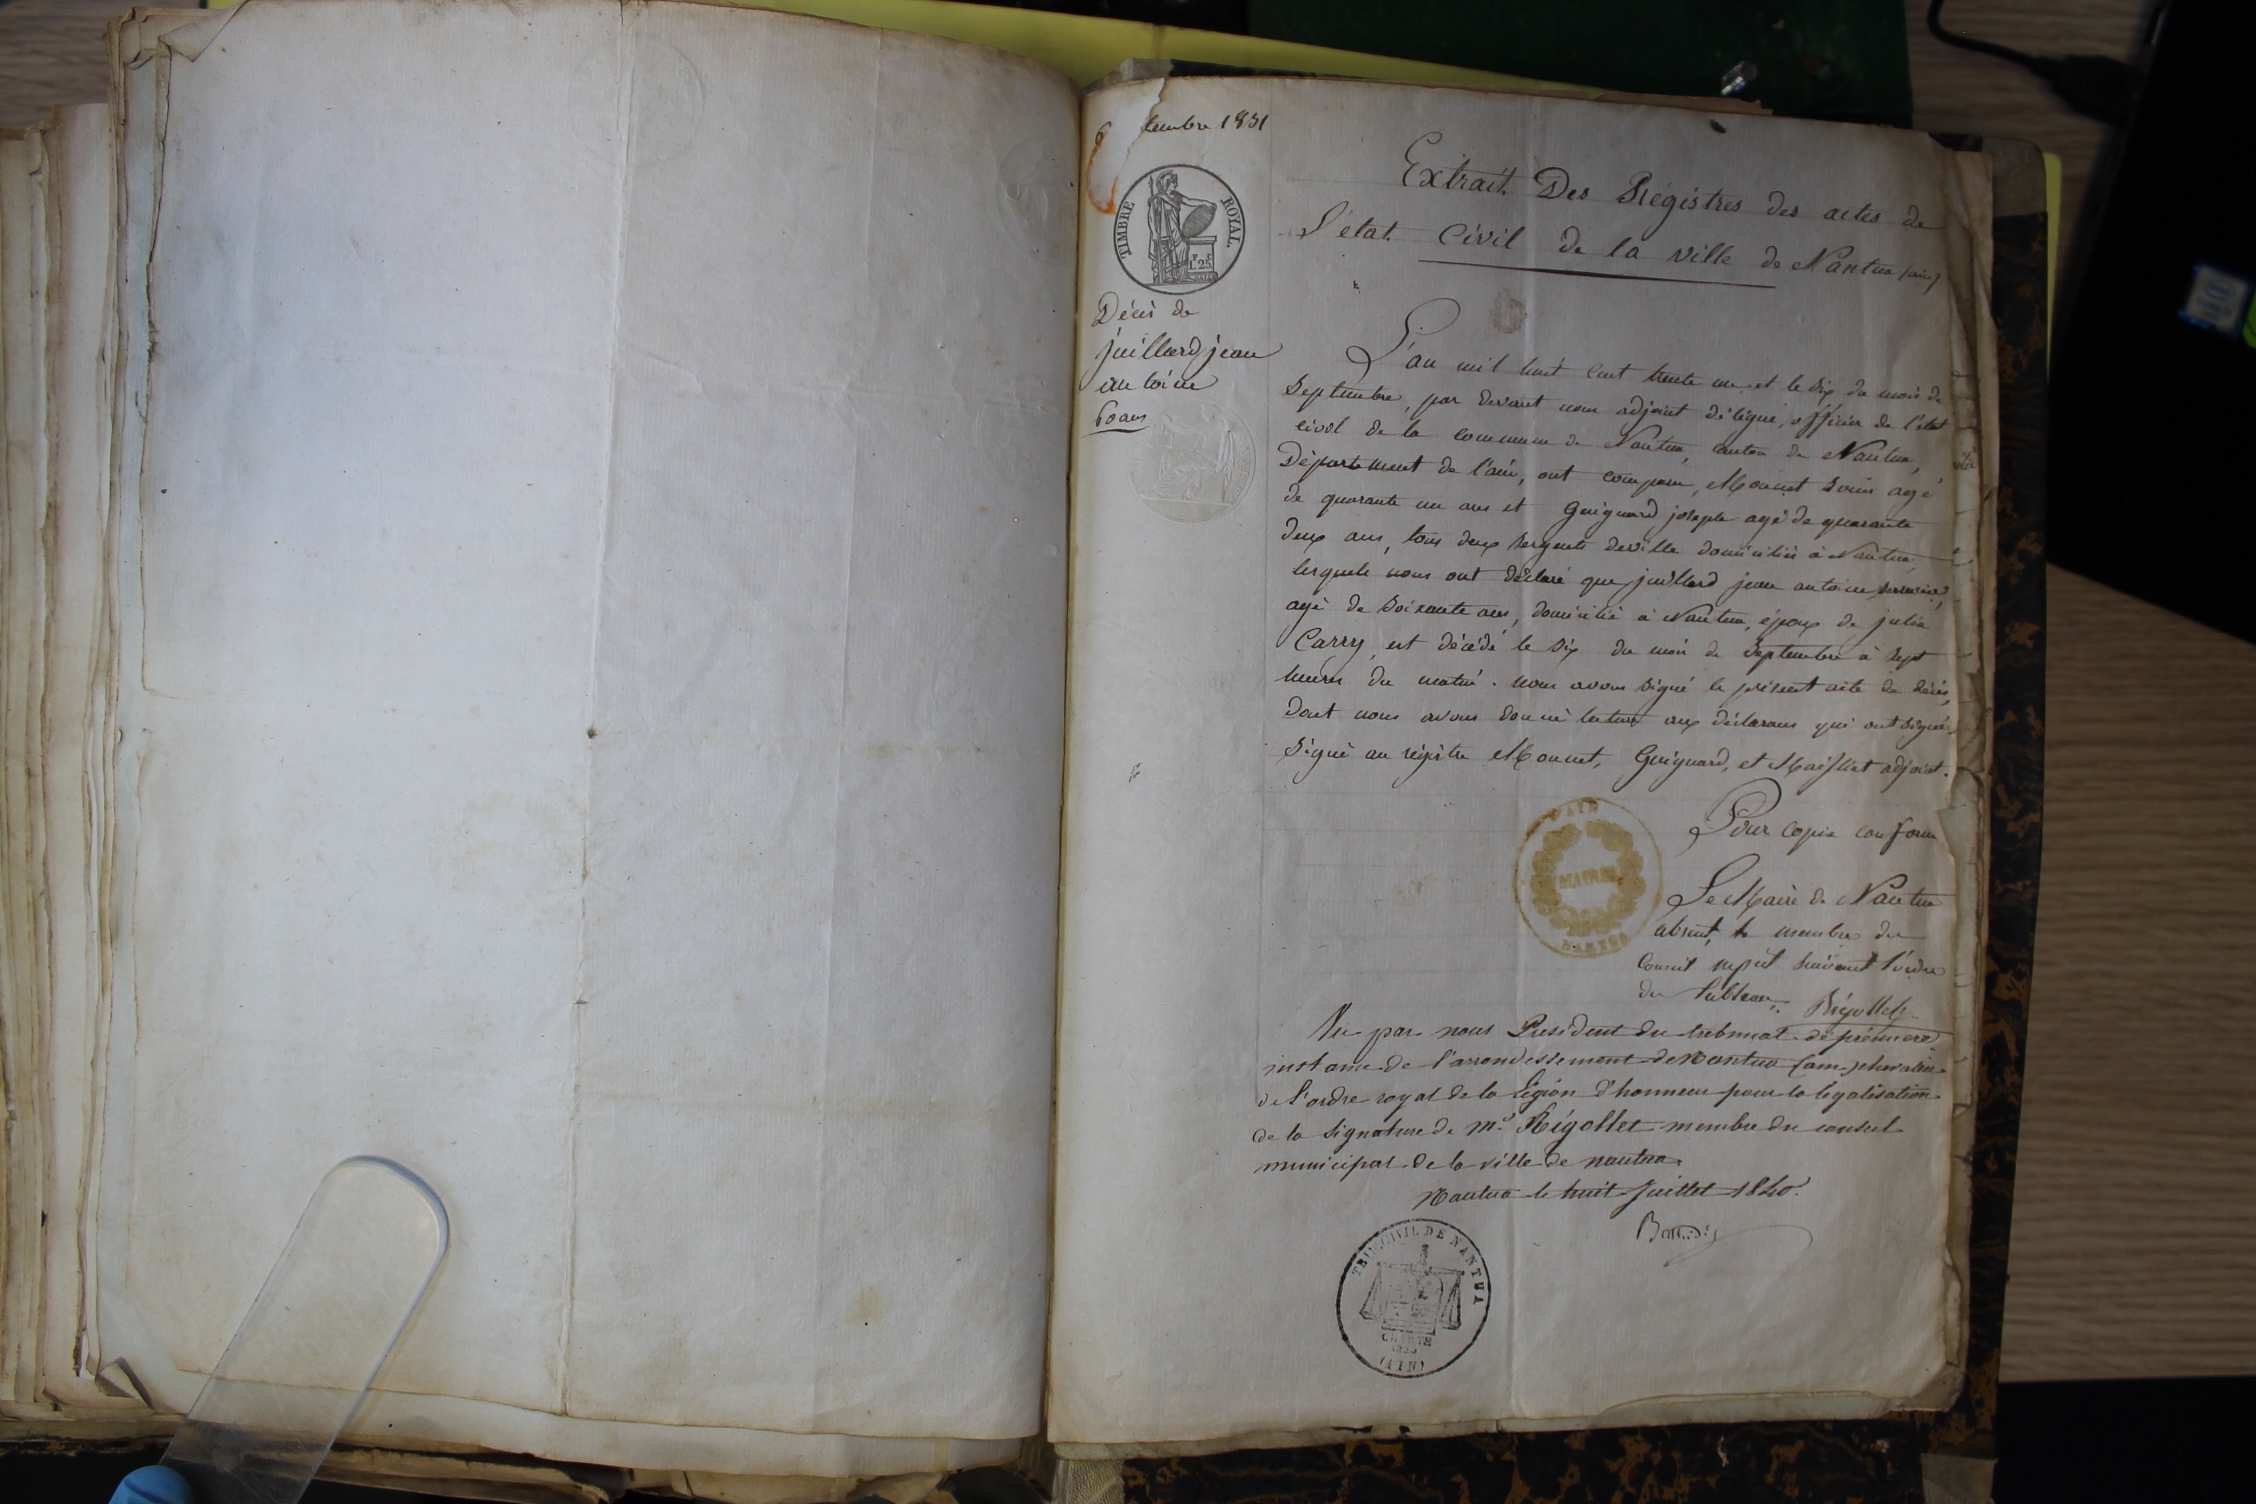 6 tembre 1831
TIMBRE ROYAL.
1.25
Décès de
juillard jean
antoine
60 ans
Extrait Des Régistres des actes de
L'état Civil de la ville de Nantua (ain)
L'an mil huit cent trente un et le six du mois de
Septembre, par devant nous adjoint délégué, officier de l'état
civil de la commune de Nantua, canton de Nantua,
Département de l'ain, ont comparu, Mounet agé
de quarante un ans et Guignard joseph agé de quarante
deux ans, tous deux sergents de ville domiciliés à Nantua
lesquels nous ont déclaré que juillard jean antoine
agé de soixante ans, domicilié à Nantua, époux de julie
Carry, est décédé le six du mois de septembre à sept
heures du matin. nous avons signé le présent acte de décès,
dont nous avons donné lecture aux déclarans qui ont signé.
Signé au régistre Mounet, Guignard, et Maillet adjoint.
Pour copie conforme
Le Maire de Nantua
absent, le membre du
Conseil suivant l'ordre
du tableau. Régollet
MAIRIE
NANTUA
Vu par nous President du tribunal de première
instance de l'arrondissement de Nantua (ain) chevalier
de l'ordre royal de la Légion d'honneur pour la légalisation
de la signature de Mr. Régollet membre du conseil
municipal de la ville de nantua.
Nantua le huit Juillet 1840.
TRIB. CIVIL DE NANTUA
CHARTE
1830
(AIN)